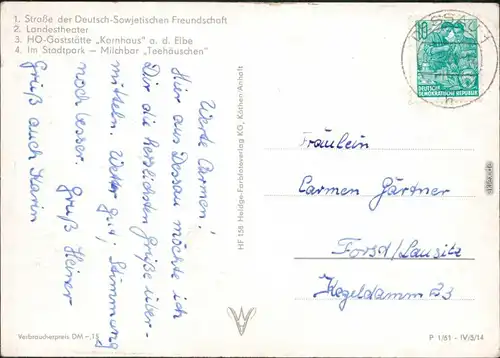 1. Straße der Deutsch-Sowjetischen Freundschaft
2. Landestheater
3. HO-Gaststätte „Kornhaus" a. d. Elbe
4. Im Stadtpark — Milchbar „Teehäuschen"
Werte Carmen!
Hier aus Dessau möchte ich
Dir die herzlichsten Grüße über-
mitteln. Wetter gut; Stimmung
noch besser. Gruß Heiner
Gruß auch Karin
HF 158 Heldge-Farbfotoverlag KG, Köthen/Anhalt
10
DEUTSCHE
DEMOKRATISCHE REPUBLIK
DESSAU 1
Fräulein
Carmen Gärtner
Forst/Lausitz
Kegeldamm 23
Verbraucherpreis DM –,15
P 1/61 - IV/3/14